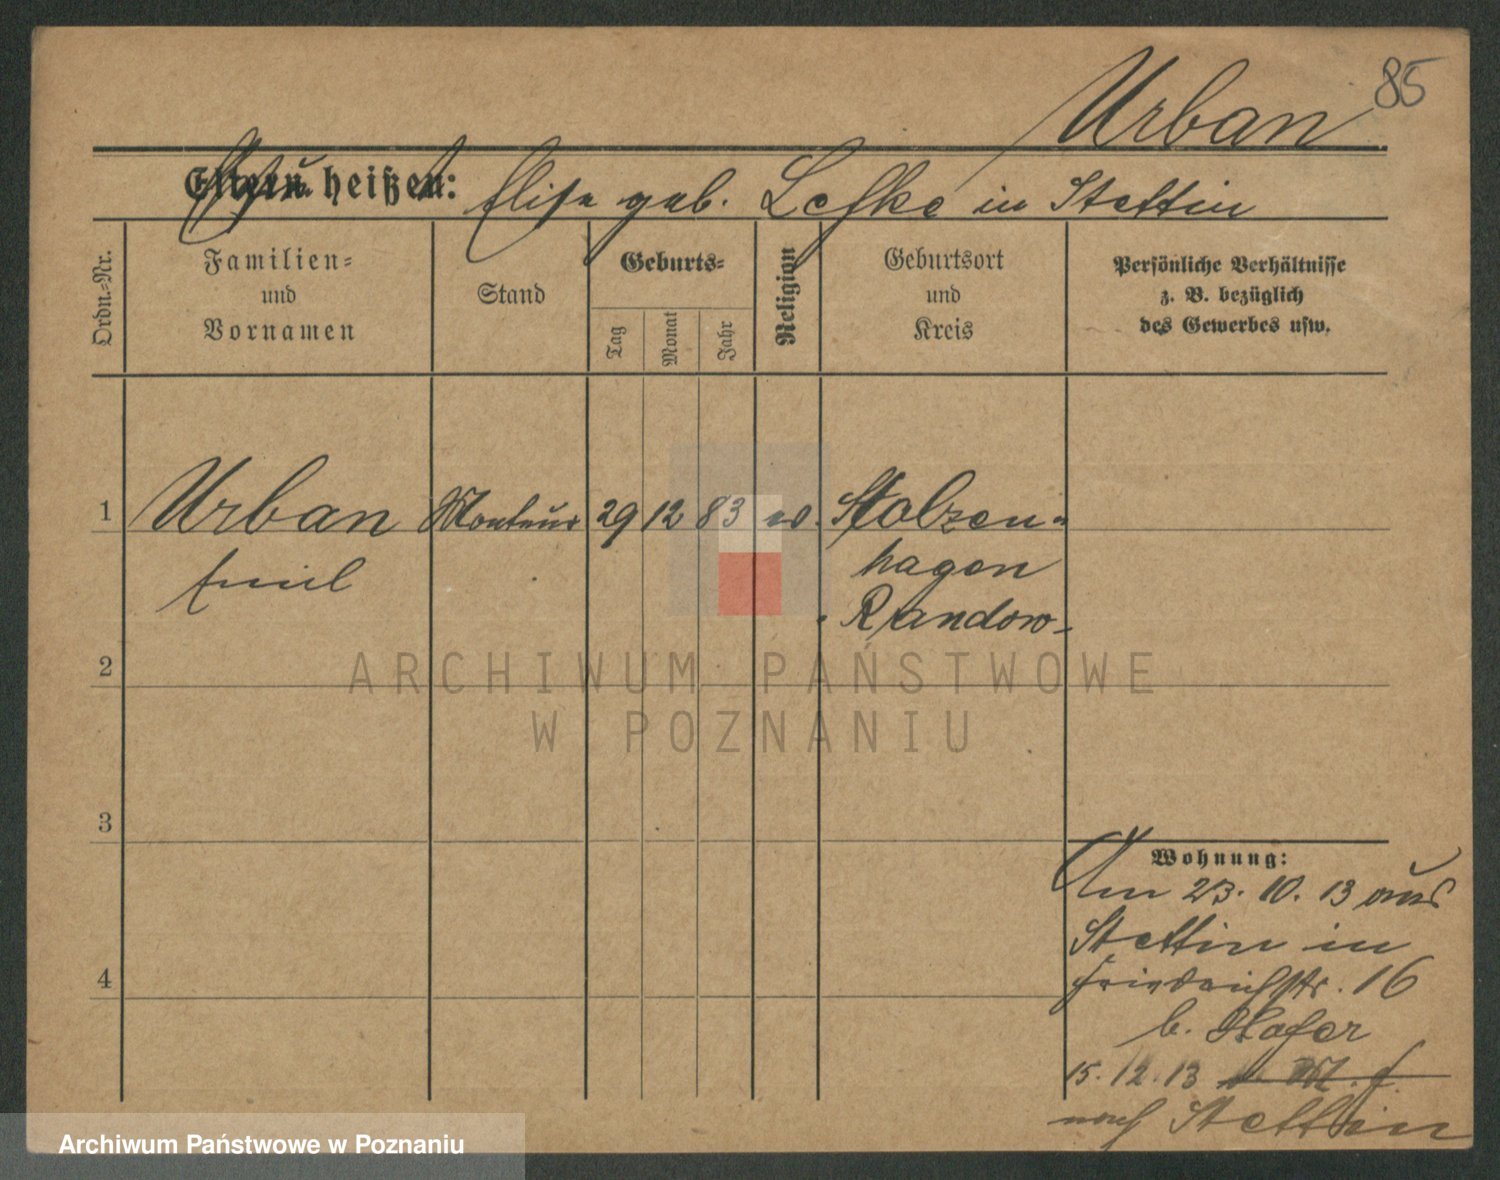 85
Urban
Eltern heißen: Elise geb. Lefke in Stettin
Ordn.-Nr.
Familien-
und
Vornamen
Stand
Geburts-
Tag
Monat
Jahr
Religion
Geburtsort
und
Kreis
Persönliche Verhältnisse
z. B. bezüglich
des Gewerbes usw.
1 Urban Monteur 29 12 83 ev. Stolzen-
Emil hagen
Randow
2
ARCHIWUM PAŃSTWOWE
W POZNANIU
3
Wohnung:
Am 23. 10. 13 aus
Stettin in
4
Friedrichstr. 16
b. Hafer
15. 12. 13
nach Stettin
Archiwum Państwowe w Poznaniu